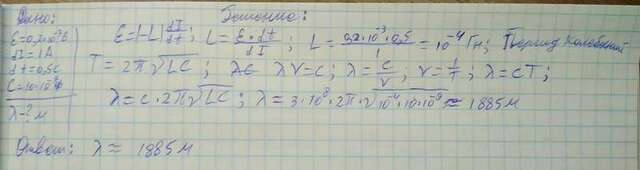 Дано: Решение:
ε=0,2·10⁻³В
dI=1А
dt=0,5с
C=10·10⁻⁹Ф
λ-? м
ε=|-L| dI/dt; L = ε·dt/dI; L = 0,2·10⁻³·0,5/1 = 10⁻⁴ Гн; Период колебаний
T = 2π√LC; λν=c; λ = c/ν, ν = 1/T; λ = cT;
λ = c·2π√LC; λ = 3·10⁸·2π·√10⁻⁴·10·10⁻⁹ ≈ 1885 м
Ответ: λ ≈ 1885 м